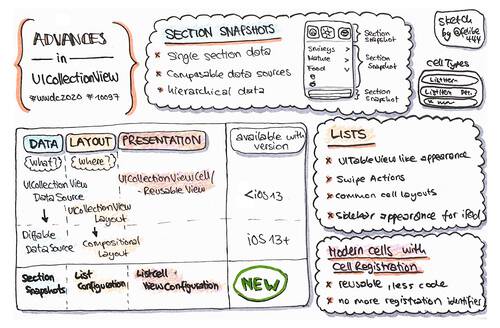 ADVANCES
in
UICollectionView
#wwdc2020 #10097
SECTION SNAPSHOTS
× Single section data
× Composable data sources
× Hierarchical data
Smileys
Nature >
Food
Section
Snapshot
Section
Snapshot
Section
Snapshot
Sketch
by @felibe
444
Cell Types
DATA LAYOUT PRESENTATION
available with
version
{what?} {where?}
UICollectionView
Data Source
UICollectionViewCell/
Reusable View
UICollectionView
Layout
<iOS13
Diffable
Data Source
Compositional
Layout
iOS 13+
Section
Snapshots
List
Configuration
Listcell +
View Configuration
NEW
LISTS
× UITableView like appearance
× Swipe Actions
× common cell layouts
× Sidebar appearance for iPad
Modern cells with
Cell Registration
× reusable, less code
× no more registration identifiers